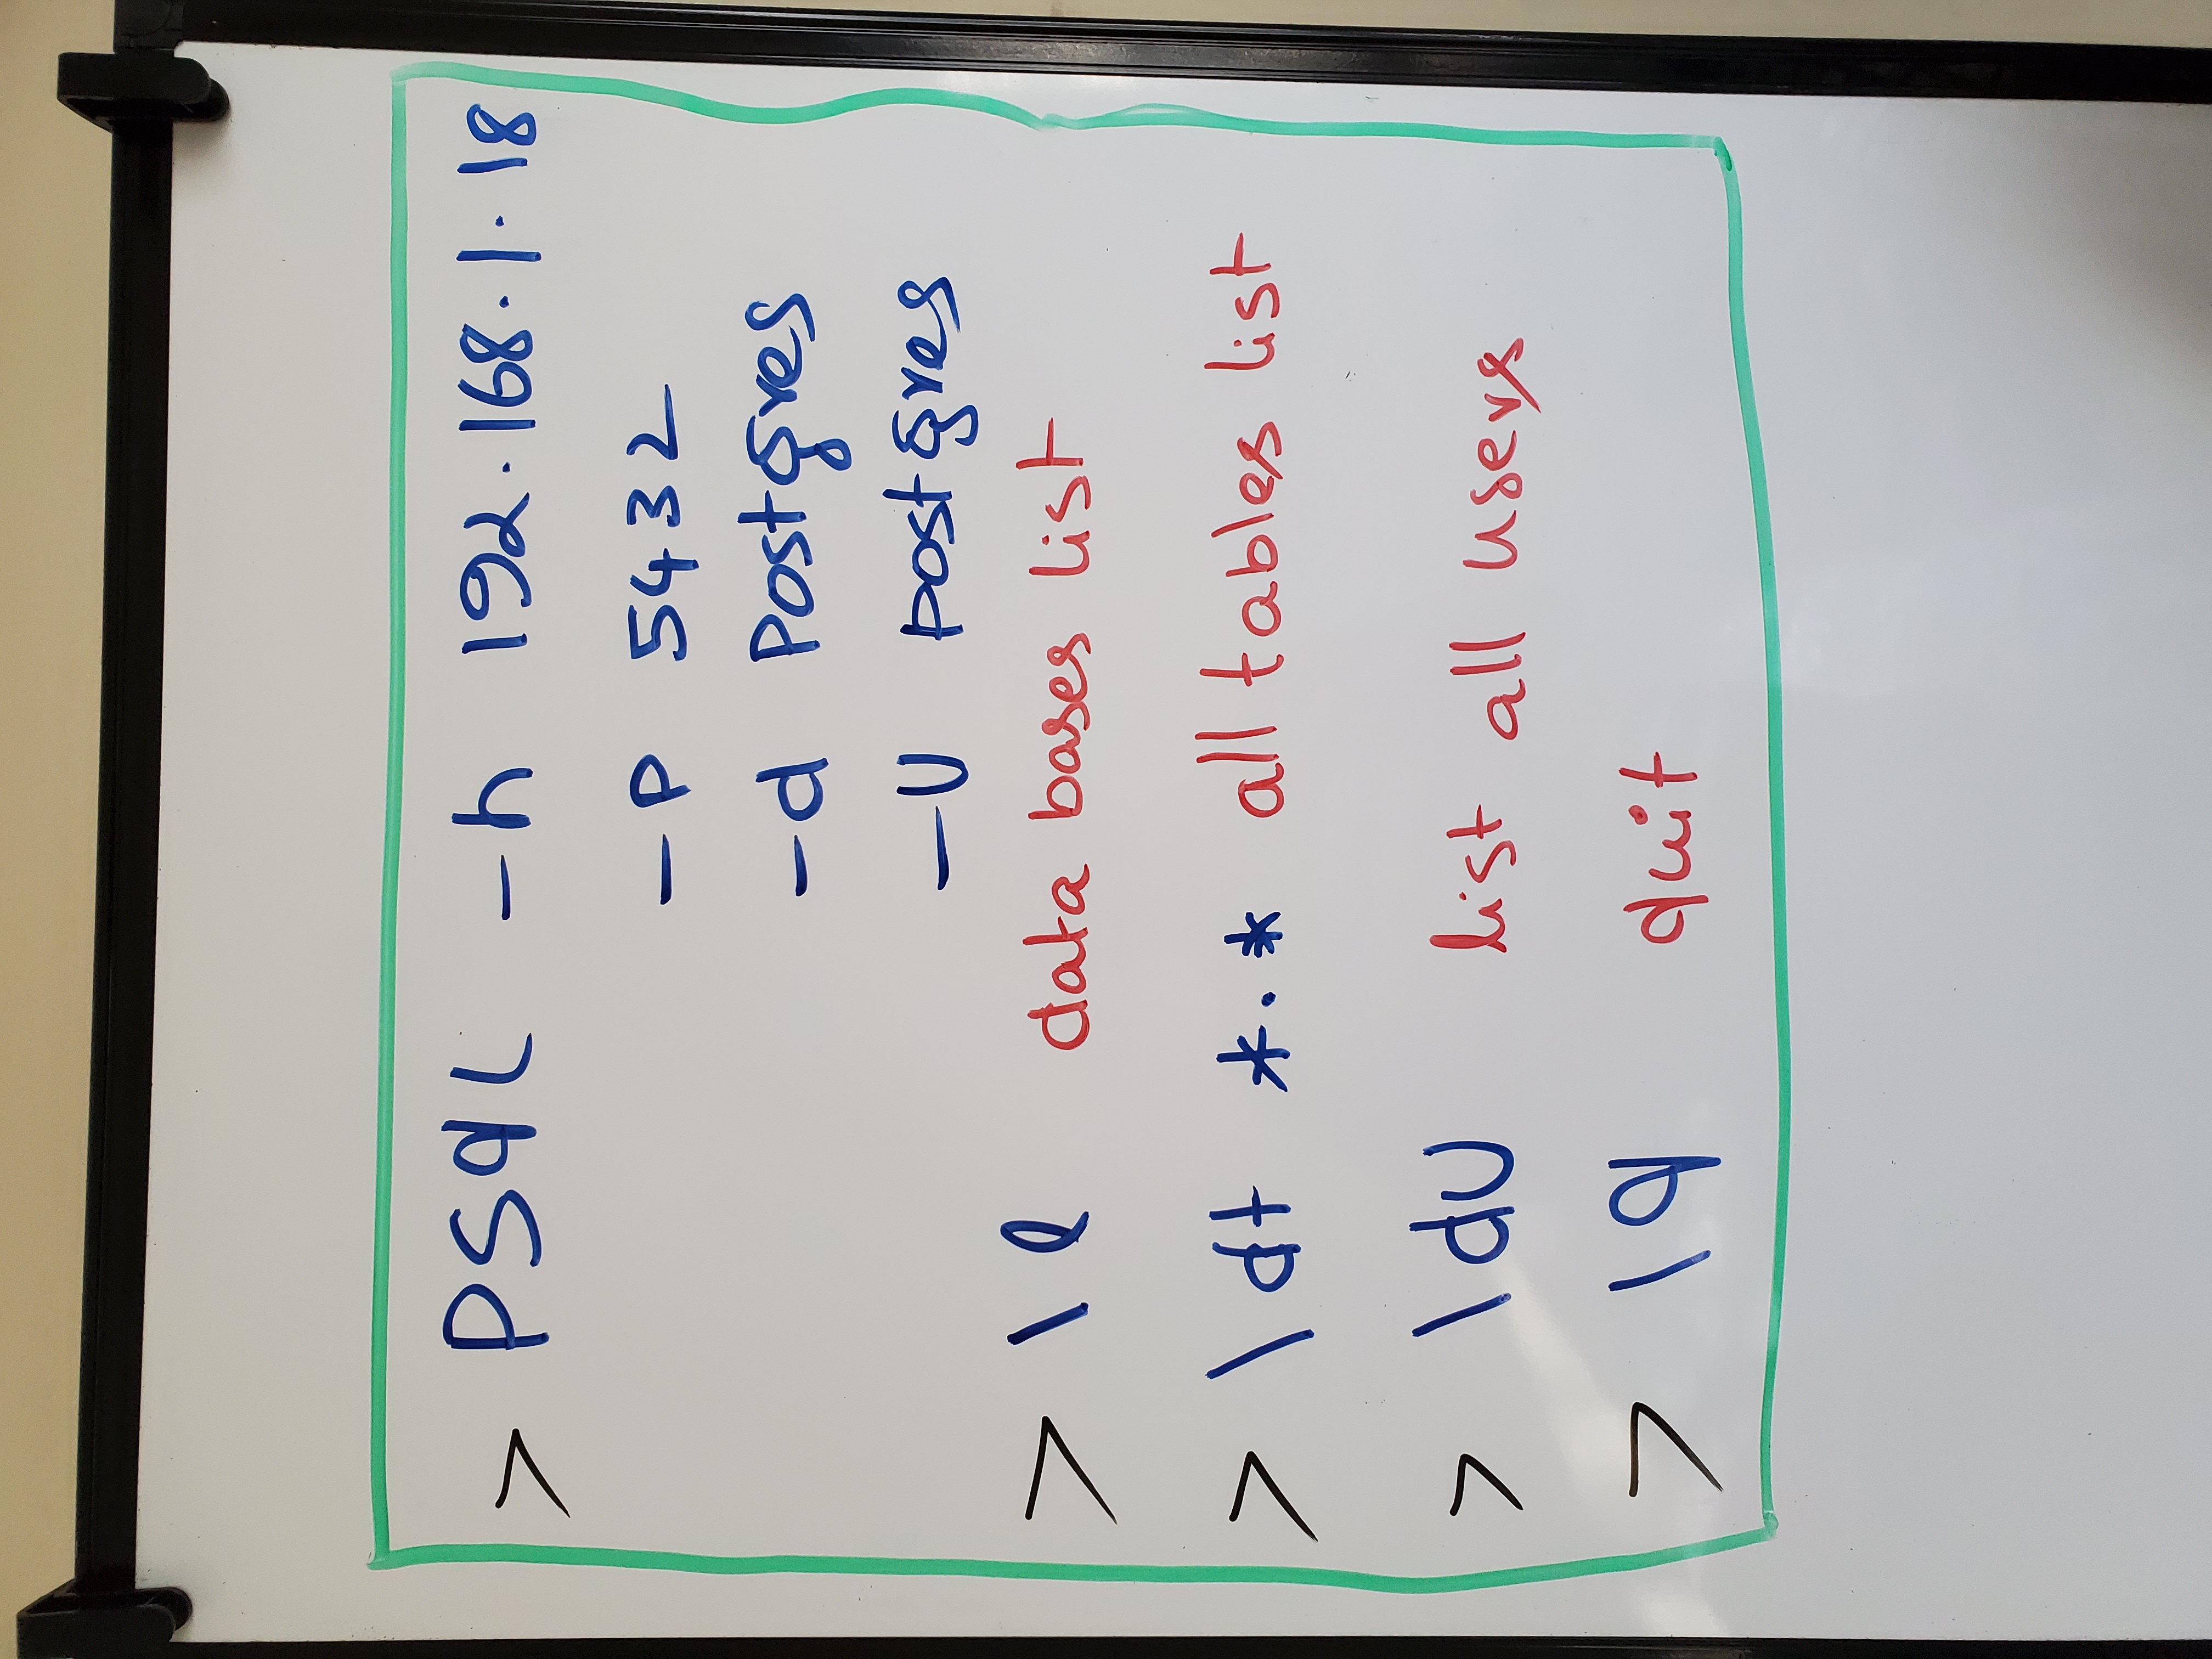 > psql -h 192.168.1.18
-p 5432
-d postgres
-U postgres
> \l data bases list
> \dt *.* all tables list
> \du list all users
> \q quit